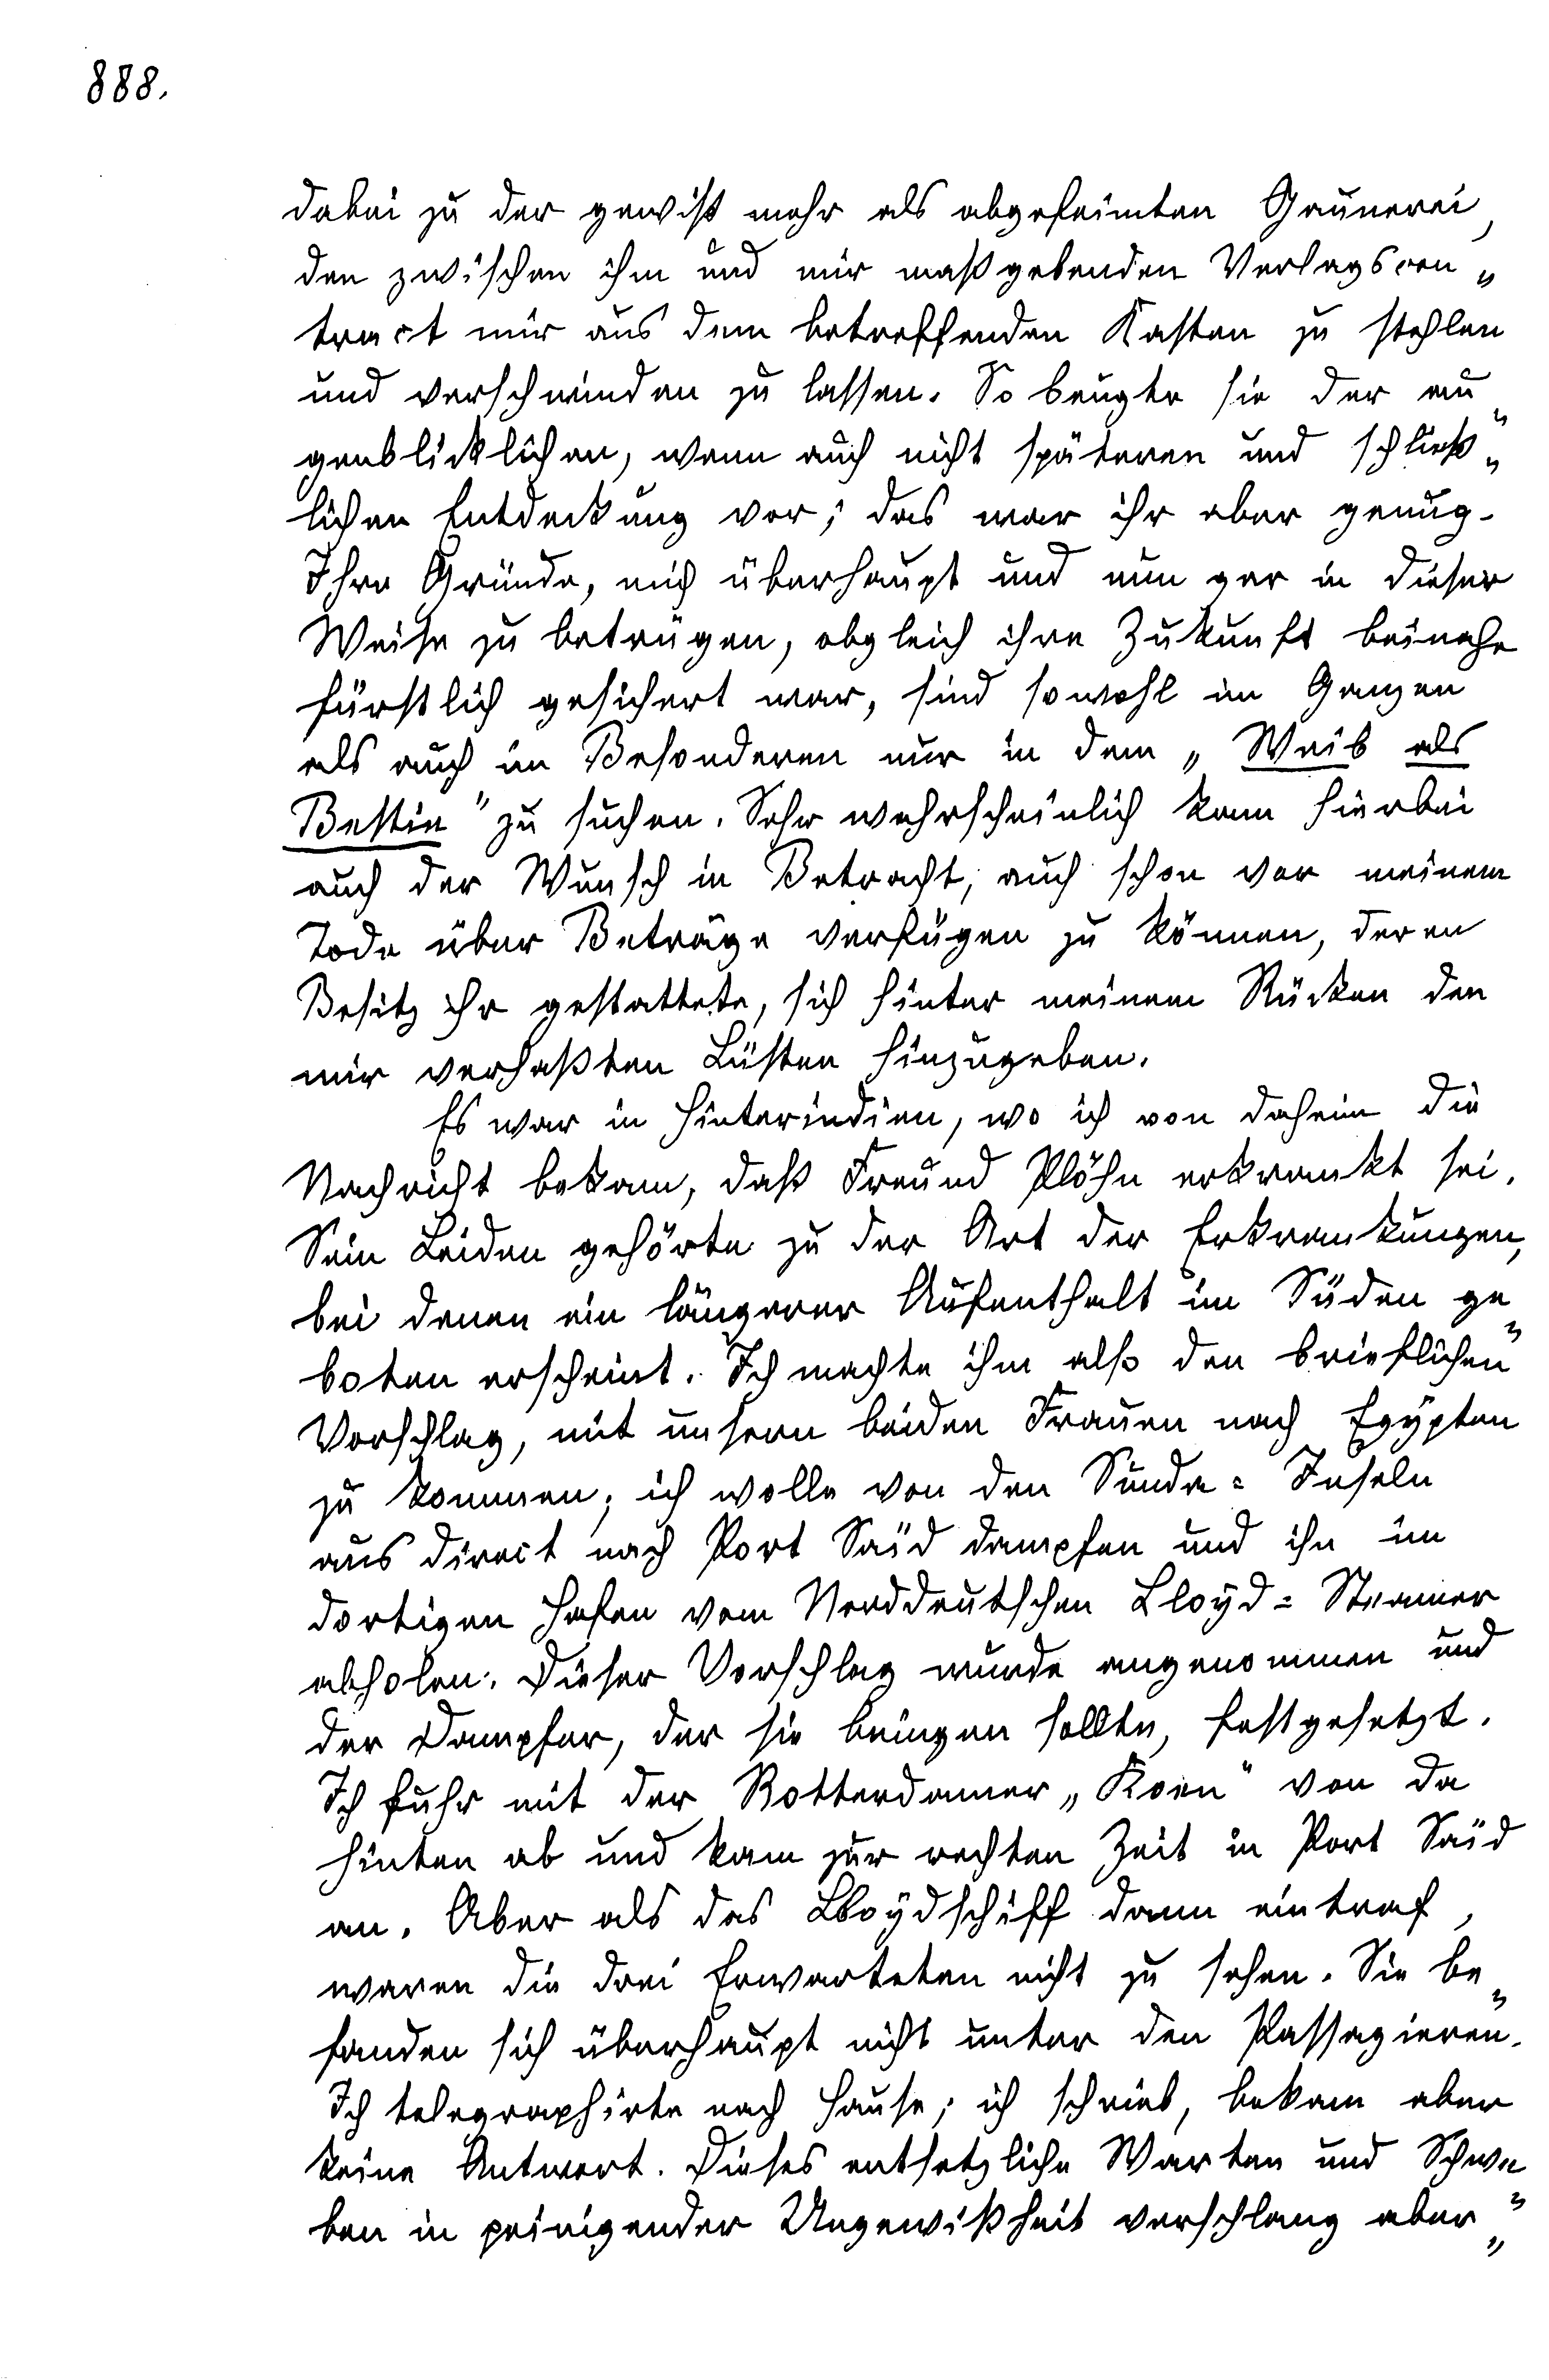 888.
dabei zu der gewiß mehr als abgefeimten Gaunerei,
den zwischen ihm und mir maßgebenden Verlagscon„
tract mir aus dem betreffenden Kasten zu stehlen
und verschwinden zu lassen. So beugte sie der au„
genblicklichen, wenn auch nicht späteren und schließ„
lichen Entdeckung vor; das war ihr aber genug.
Ihre Gründe, mich überhaupt und nun gar in dieser
Weise zu betrügen, obgleich ihre Zukunft beinahe
fürstlich gesichert war, sind sowohl im Ganzen
als auch im Besonderen nur in dem „Weib als
Bestie" zu suchen. Sehr wahrscheinlich kam hierbei
auch der Wunsch in Betracht, auch schon vor meinem
Tode über Beträge verfügen zu können, deren
Besitz ihr gestattete, sich hinter meinem Rücken den
mir verhaßten Lüsten hinzugeben.
Es war in Hinterindien, wo ich von daheim die
Nachricht bekam, daß Freund Plöhn erkrankt sei.
Sein Leiden gehörte zu der Art der Erkrankungen,
bei denen ein längerer Aufenthalt im Süden ge„
boten erscheint. Ich machte ihm also den brieflichen
Vorschlag, mit unsern beiden Frauen nach Egypten
zu kommen; ich wolle von den Sunda= Inseln
aus direct nach Port Saïd dampfen und ihn im
dortigen Hafen vom Norddeutschen Lloyd= Steamer
abholen. Dieser Vorschlag wurde angenommen und
der Dampfer, der sie bringen sollte, festgesetzt.
Ich fuhr mit der Rotterdamer „Koen" von da
hinten ab und kam zur rechten Zeit in Port Saïd
an. Aber als das Lloydschiff dann eintraf,
waren die drei Erwarteten nicht zu sehen. Sie be„
fanden sich überhaupt nicht unter den Passagieren.
Ich telegraphirte nach Hause; ich schrieb, bekam aber
keine Antwort. Dieses entsetzliche Warten und Schwe„
ben in peinigender Ungewißheit verschlang aber„